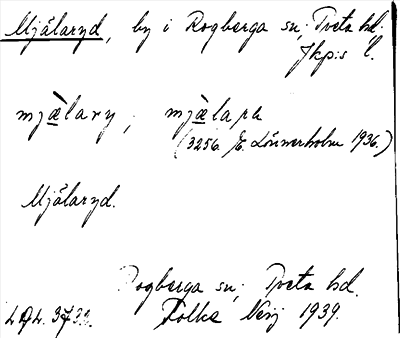 Mjälaryd, by i Rogberga sn; Tveta hd.
Jkp:s l.
mjæ̀lary, mjæ̀la
(3256. E. Lönnerholm 1936.)
Mjälaryd.
Rogberga sn; Tveta hd.
Folke 1939.